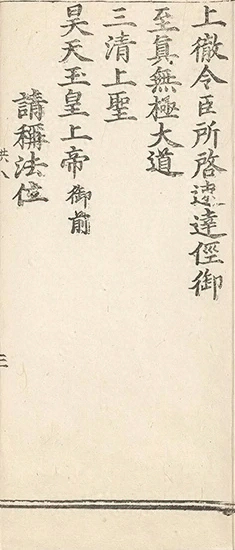 上徹令臣所啓逺達侱御
至真無極大道
三清上聖
昊天玉皇上帝御前
請稱法位
共八
三